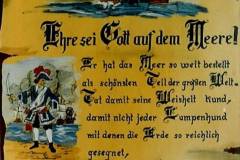 Ehre sei Gott auf dem Meere!
Er hat das Meer so weit bestellt
als schönsten Teil der großen Welt.
Tat damit seine Weisheit kund,
damit nicht jeder Lumpenhund
mit denen die Erde so reichlich
gesegnet,